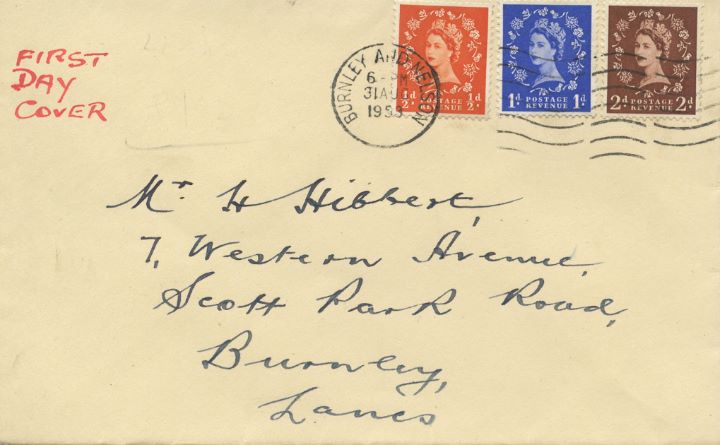 FIRST
DAY
COVER
BURNLEY AND NELSON
6-PM
31 AU
1953
½d POSTAGE REVENUE ½d
1d POSTAGE REVENUE 1d
2d POSTAGE REVENUE 2d
Mr H Hibbert,
7, Western Avenue,
Scott Park Road,
Burnley,
Lancs